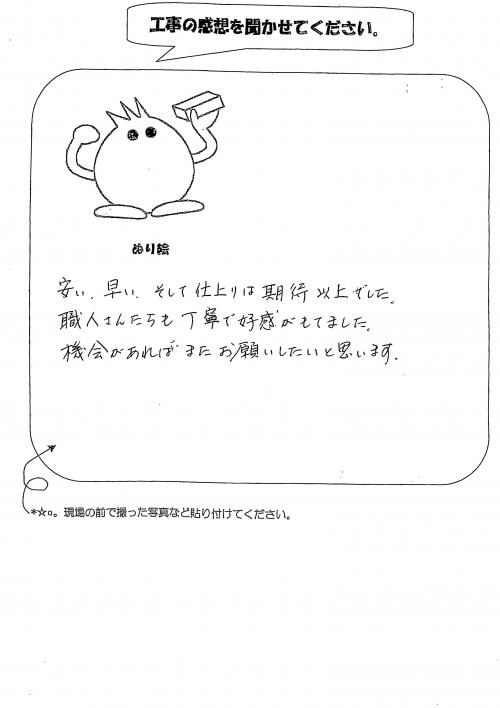 工事の感想を聞かせてください。
ぬり絵
安い、早い、そして仕上りは期待以上でした。
職人さんたちも丁寧で好感がもてました。
機会があればまたお願いしたいと思います。
*☆○。現場の前で撮った写真など貼り付けてください。